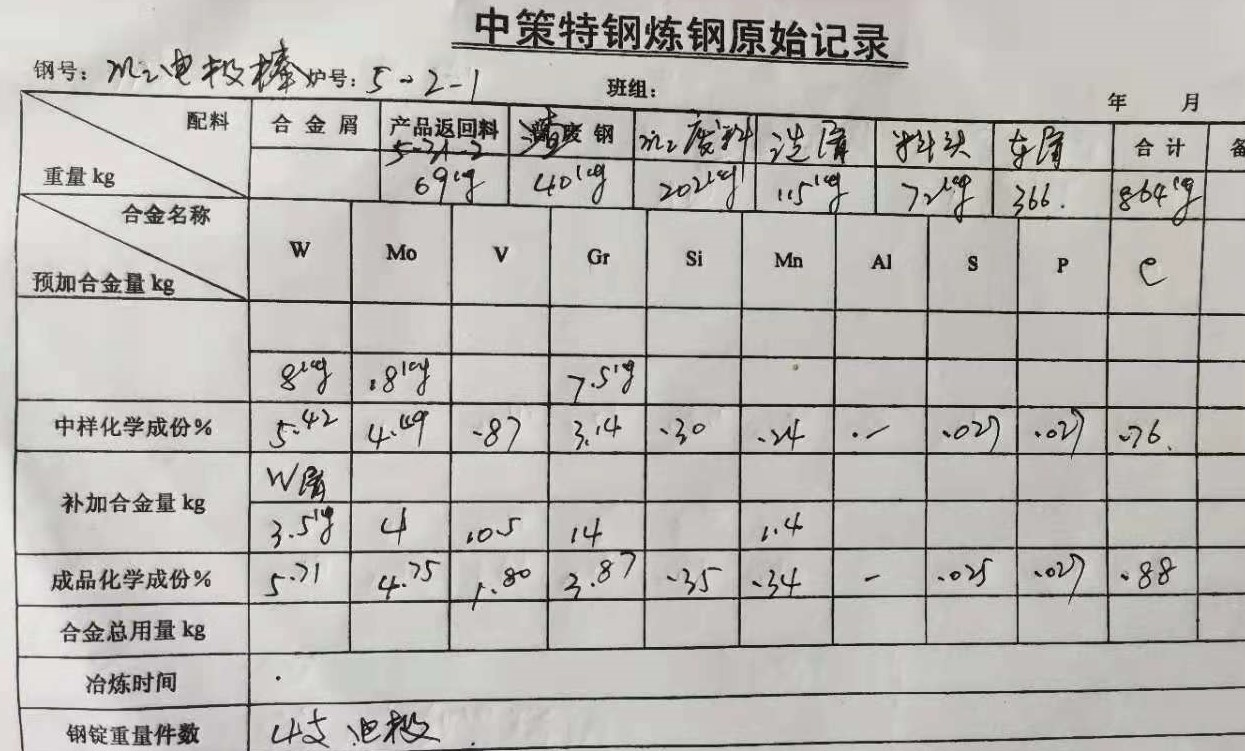 中策特钢炼钢原始记录
钢号: m2电极棒 炉号: 5-2-1 班组: 年 月
配料 合金屑 产品返回料 废钢 m2废料 渣屑 料头 车屑 合计 备
5-21-2
重量kg 69kg 40kg 202kg 115kg 72kg 366. 864kg
合金名称
W Mo V Gr Si Mn Al S P C
预加合金量kg
8kg 18kg 7.5kg
中样化学成份% 5.42 4.49 .87 3.14 .30 .24 .- .027 .027 .76.
W屑
补加合金量kg
3.5kg 4 10.5 14 1.4
成品化学成份% 5.71 4.75 1.80 3.87 .35 .34 - .025 .027 .88
合金总用量kg
冶炼时间
钢锭重量件数 4支 电极